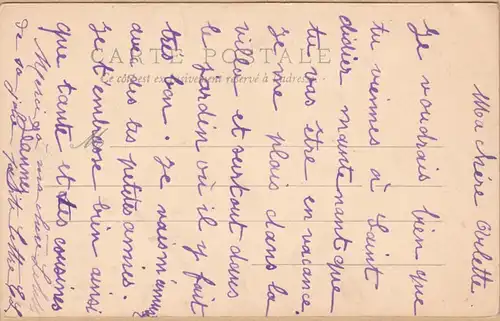 CARTE POSTALE
Ce côté est exclusivement réservé à l'adresse
Ma chère Arlette
Je voudrais bien que
tu viennes à Saint
didier maintenant que
tu vas être en vacance.
Je me plais dans la
villa et surtout dans
le jardin où il y fait
très bon. Je vais m'amuser
avec les tes petites amies.
Je t'embrasse bien ainsi
que tante et tes cousines
Jannes
Merci à ma chère
de sa jolie petite lettre